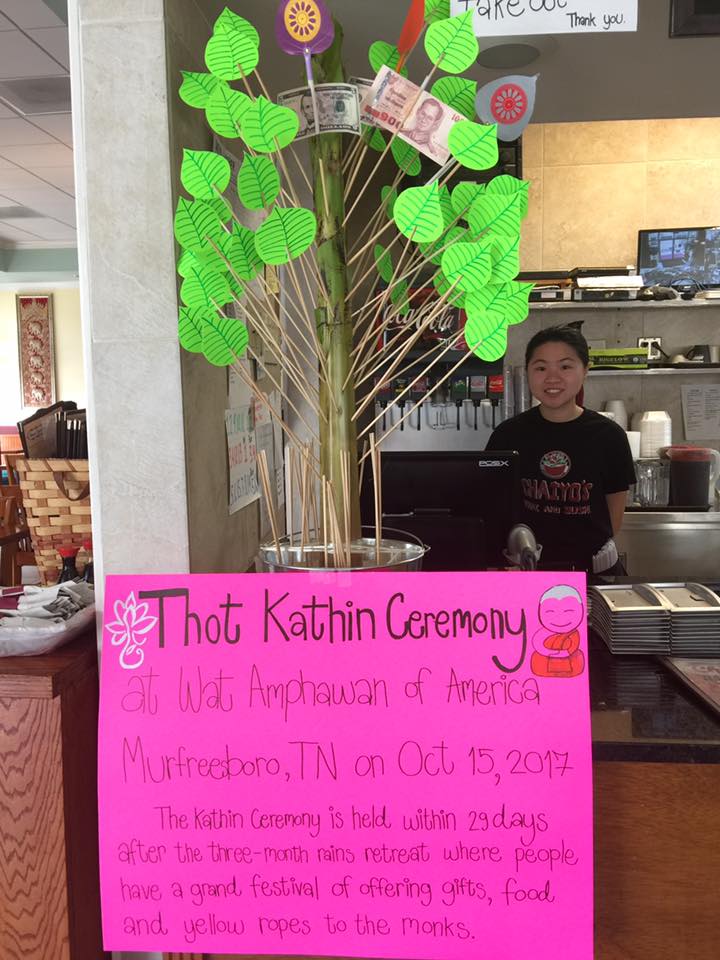 Take out
Thank you.
100
Coca-Cola
POSX
CHAIYO'S
THAI AND SUSHI
BIGELOW
Thot Kathin Ceremony
at Wat Amphawan of America
Murfreesboro, TN on Oct 15, 2017
The Kathin Ceremony is held within 29 days
after the three-month rains retreat where people
have a grand festival of offering gifts, food
and yellow ropes to the monks.